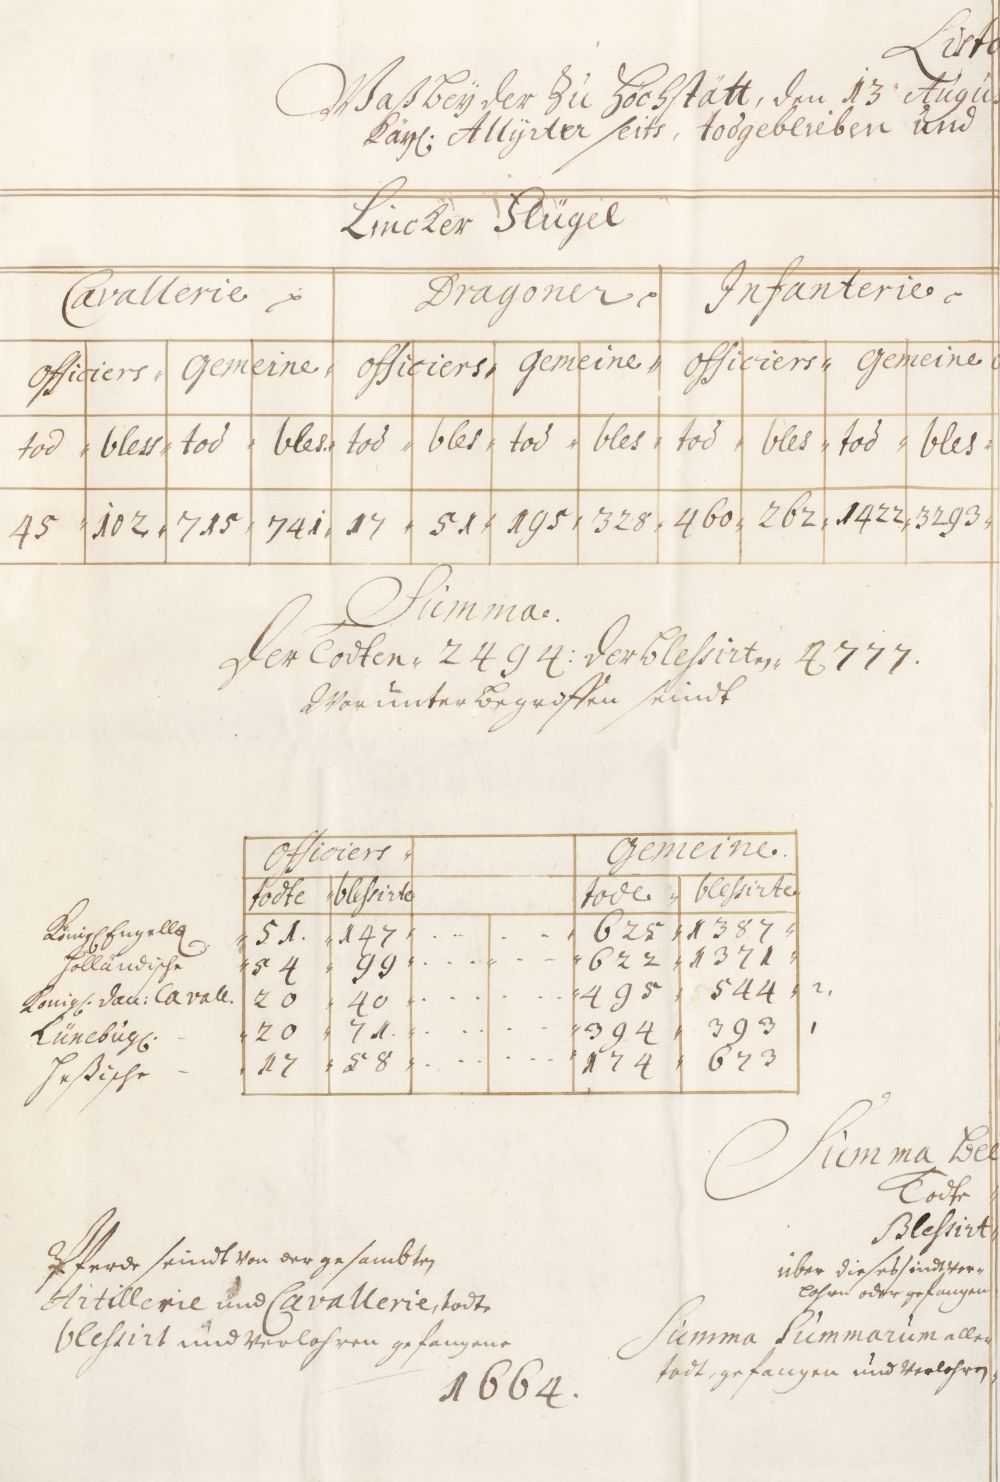 Liste
Waß bey der zu Höchstätt, den 13 Augu
Käyl: Allyrter seits, todgeblieben und
Lincker Flügel
Cavallerie Dragoner Infanterie
officiers Gemeine officiers Gemeine officiers Gemeine
tod bless tod bles. tod bles tod bles tod bles tod bles
45 102 715 741 17 51 195 328 460 262 1422 3293
Summa.
Der Todten 2494: der blessirten 4777.
Worunter begriffen seindt
Officiers Gemeine.
todte blessirte tode blessirte
Königl Engellä 51. 147 625 1387
Holländische 54 99 622 1371
Königl. Dän: Cavall. 20 40 495 544 2.
Lünebúgl. 20 71. 394 393 1
Heßische 17 58 174 673
Summa bee
Todte
Blessirt
über dieses sindt ver-
lohrn oder gefangen
Summa Summarum aller
todt, gefangen und verlohren
Pferde seindt von der gesambten
Artillerie und Cavallerie, todt
blessirt und verlohren gefangene
1664.